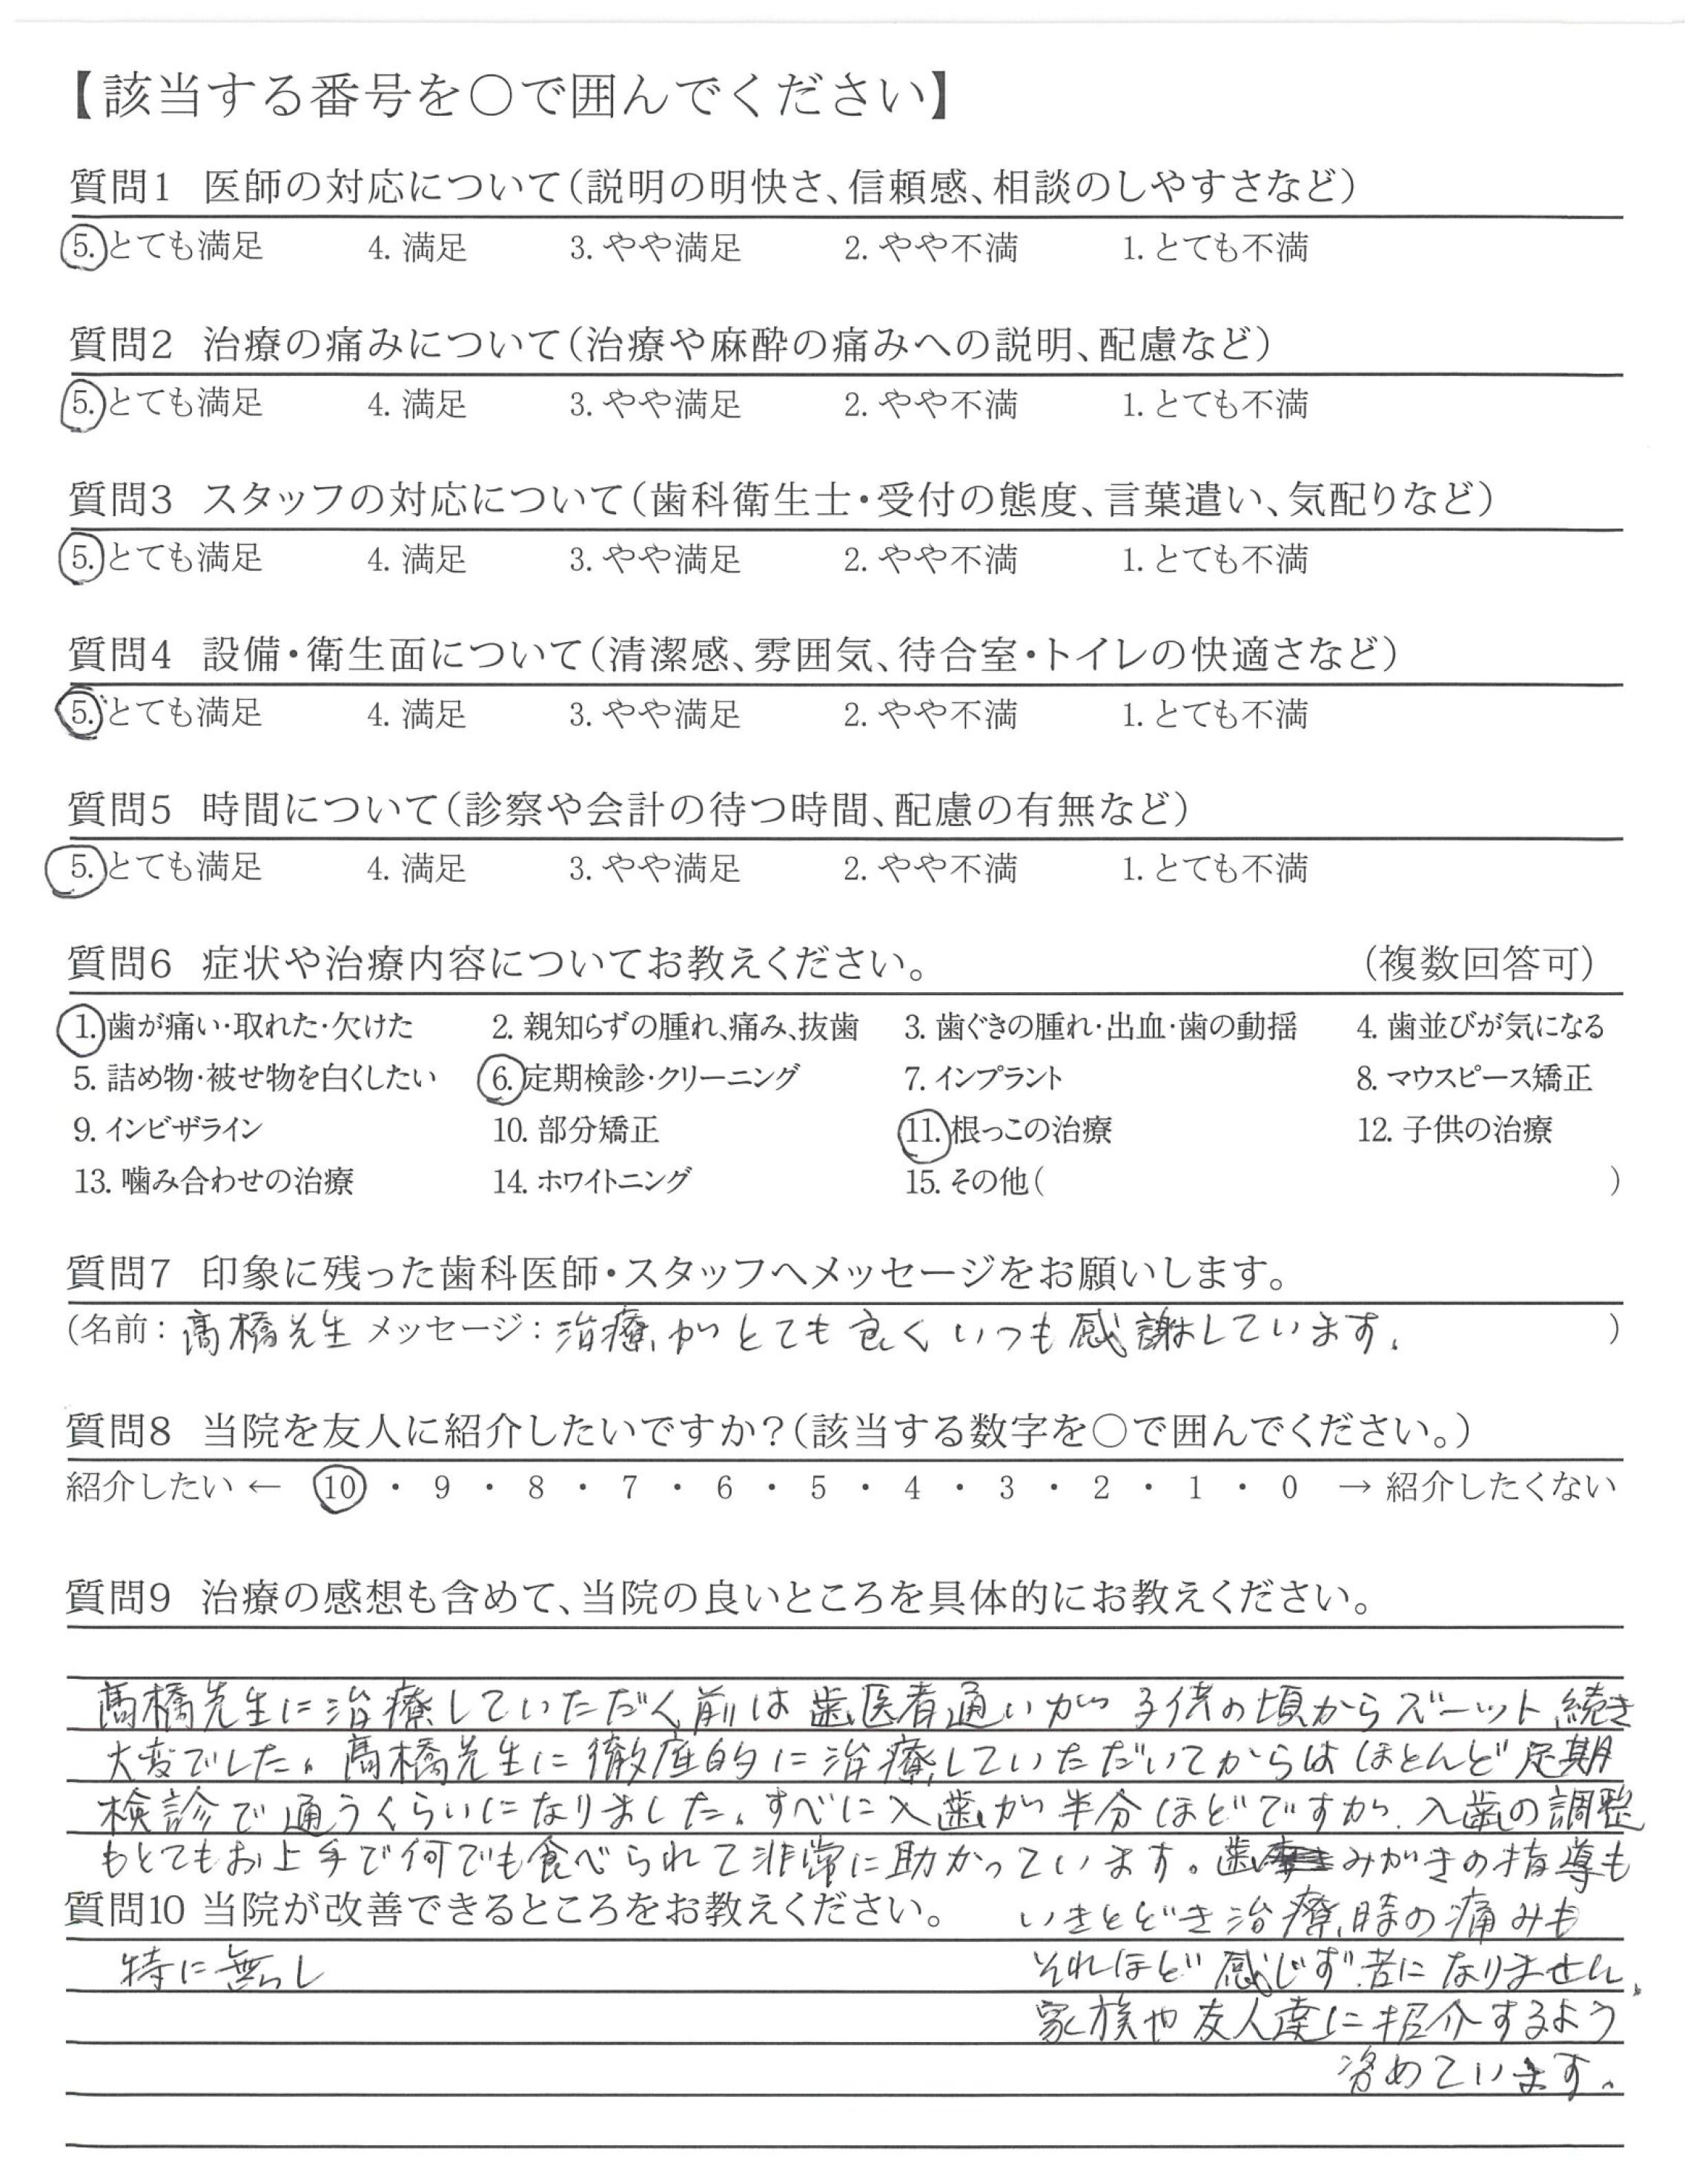 【該当する番号を○で囲んでください】
質問1 医師の対応について(説明の明快さ、信頼感、相談のしやすさなど)
5. とても満足 4. 満足 3. やや満足 2. やや不満 1. とても不満
質問2 治療の痛みについて(治療や麻酔の痛みへの説明、配慮など)
5. とても満足 4. 満足 3. やや満足 2. やや不満 1. とても不満
質問3 スタッフの対応について(歯科衛生士・受付の態度、言葉遣い、気配りなど)
5. とても満足 4. 満足 3. やや満足 2. やや不満 1. とても不満
質問4 設備・衛生面について(清潔感、雰囲気、待合室・トイレの快適さなど)
5. とても満足 4. 満足 3. やや満足 2. やや不満 1. とても不満
質問5 時間について(診察や会計の待つ時間、配慮の有無など)
5. とても満足 4. 満足 3. やや満足 2. やや不満 1. とても不満
質問6 症状や治療内容についてお教えください。 (複数回答可)
1. 歯が痛い・取れた・欠けた 2. 親知らずの腫れ、痛み、抜歯 3. 歯ぐきの腫れ・出血・歯の動揺 4. 歯並びが気になる
5. 詰め物・被せ物を白くしたい 6. 定期検診・クリーニング 7. インプラント 8. マウスピース矯正
9. インビザライン 10. 部分矯正 11. 根っこの治療 12. 子供の治療
13. 噛み合わせの治療 14. ホワイトニング 15. その他( )
質問7 印象に残った歯科医師・スタッフへメッセージをお願いします。
(名前: 髙橋先生 メッセージ: 治療がとても良くいつも感謝しています。 )
質問8 当院を友人に紹介したいですか?(該当する数字を○で囲んでください。)
紹介したい ← 10 ・ 9 ・ 8 ・ 7 ・ 6 ・ 5 ・ 4 ・ 3 ・ 2 ・ 1 ・ 0 → 紹介したくない
質問9 治療の感想も含めて、当院の良いところを具体的にお教えください。
髙橋先生に治療していただく前は歯医者通いが子供の頃からズーット続き
大変でした。髙橋先生に徹底的に治療していただいてからはほとんど定期
検診で通うくらいになりました。すべに入歯が半分ほどですが、入歯の調整
もとてもお上手で何でも食べられて非常に助かっています。歯みがきの指導も
質問10 当院が改善できるところをお教えください。 いきとどき治療時の痛みも
特に無し それほど感じず苦になりません。
家族や友人達に紹介するよう
努めています。